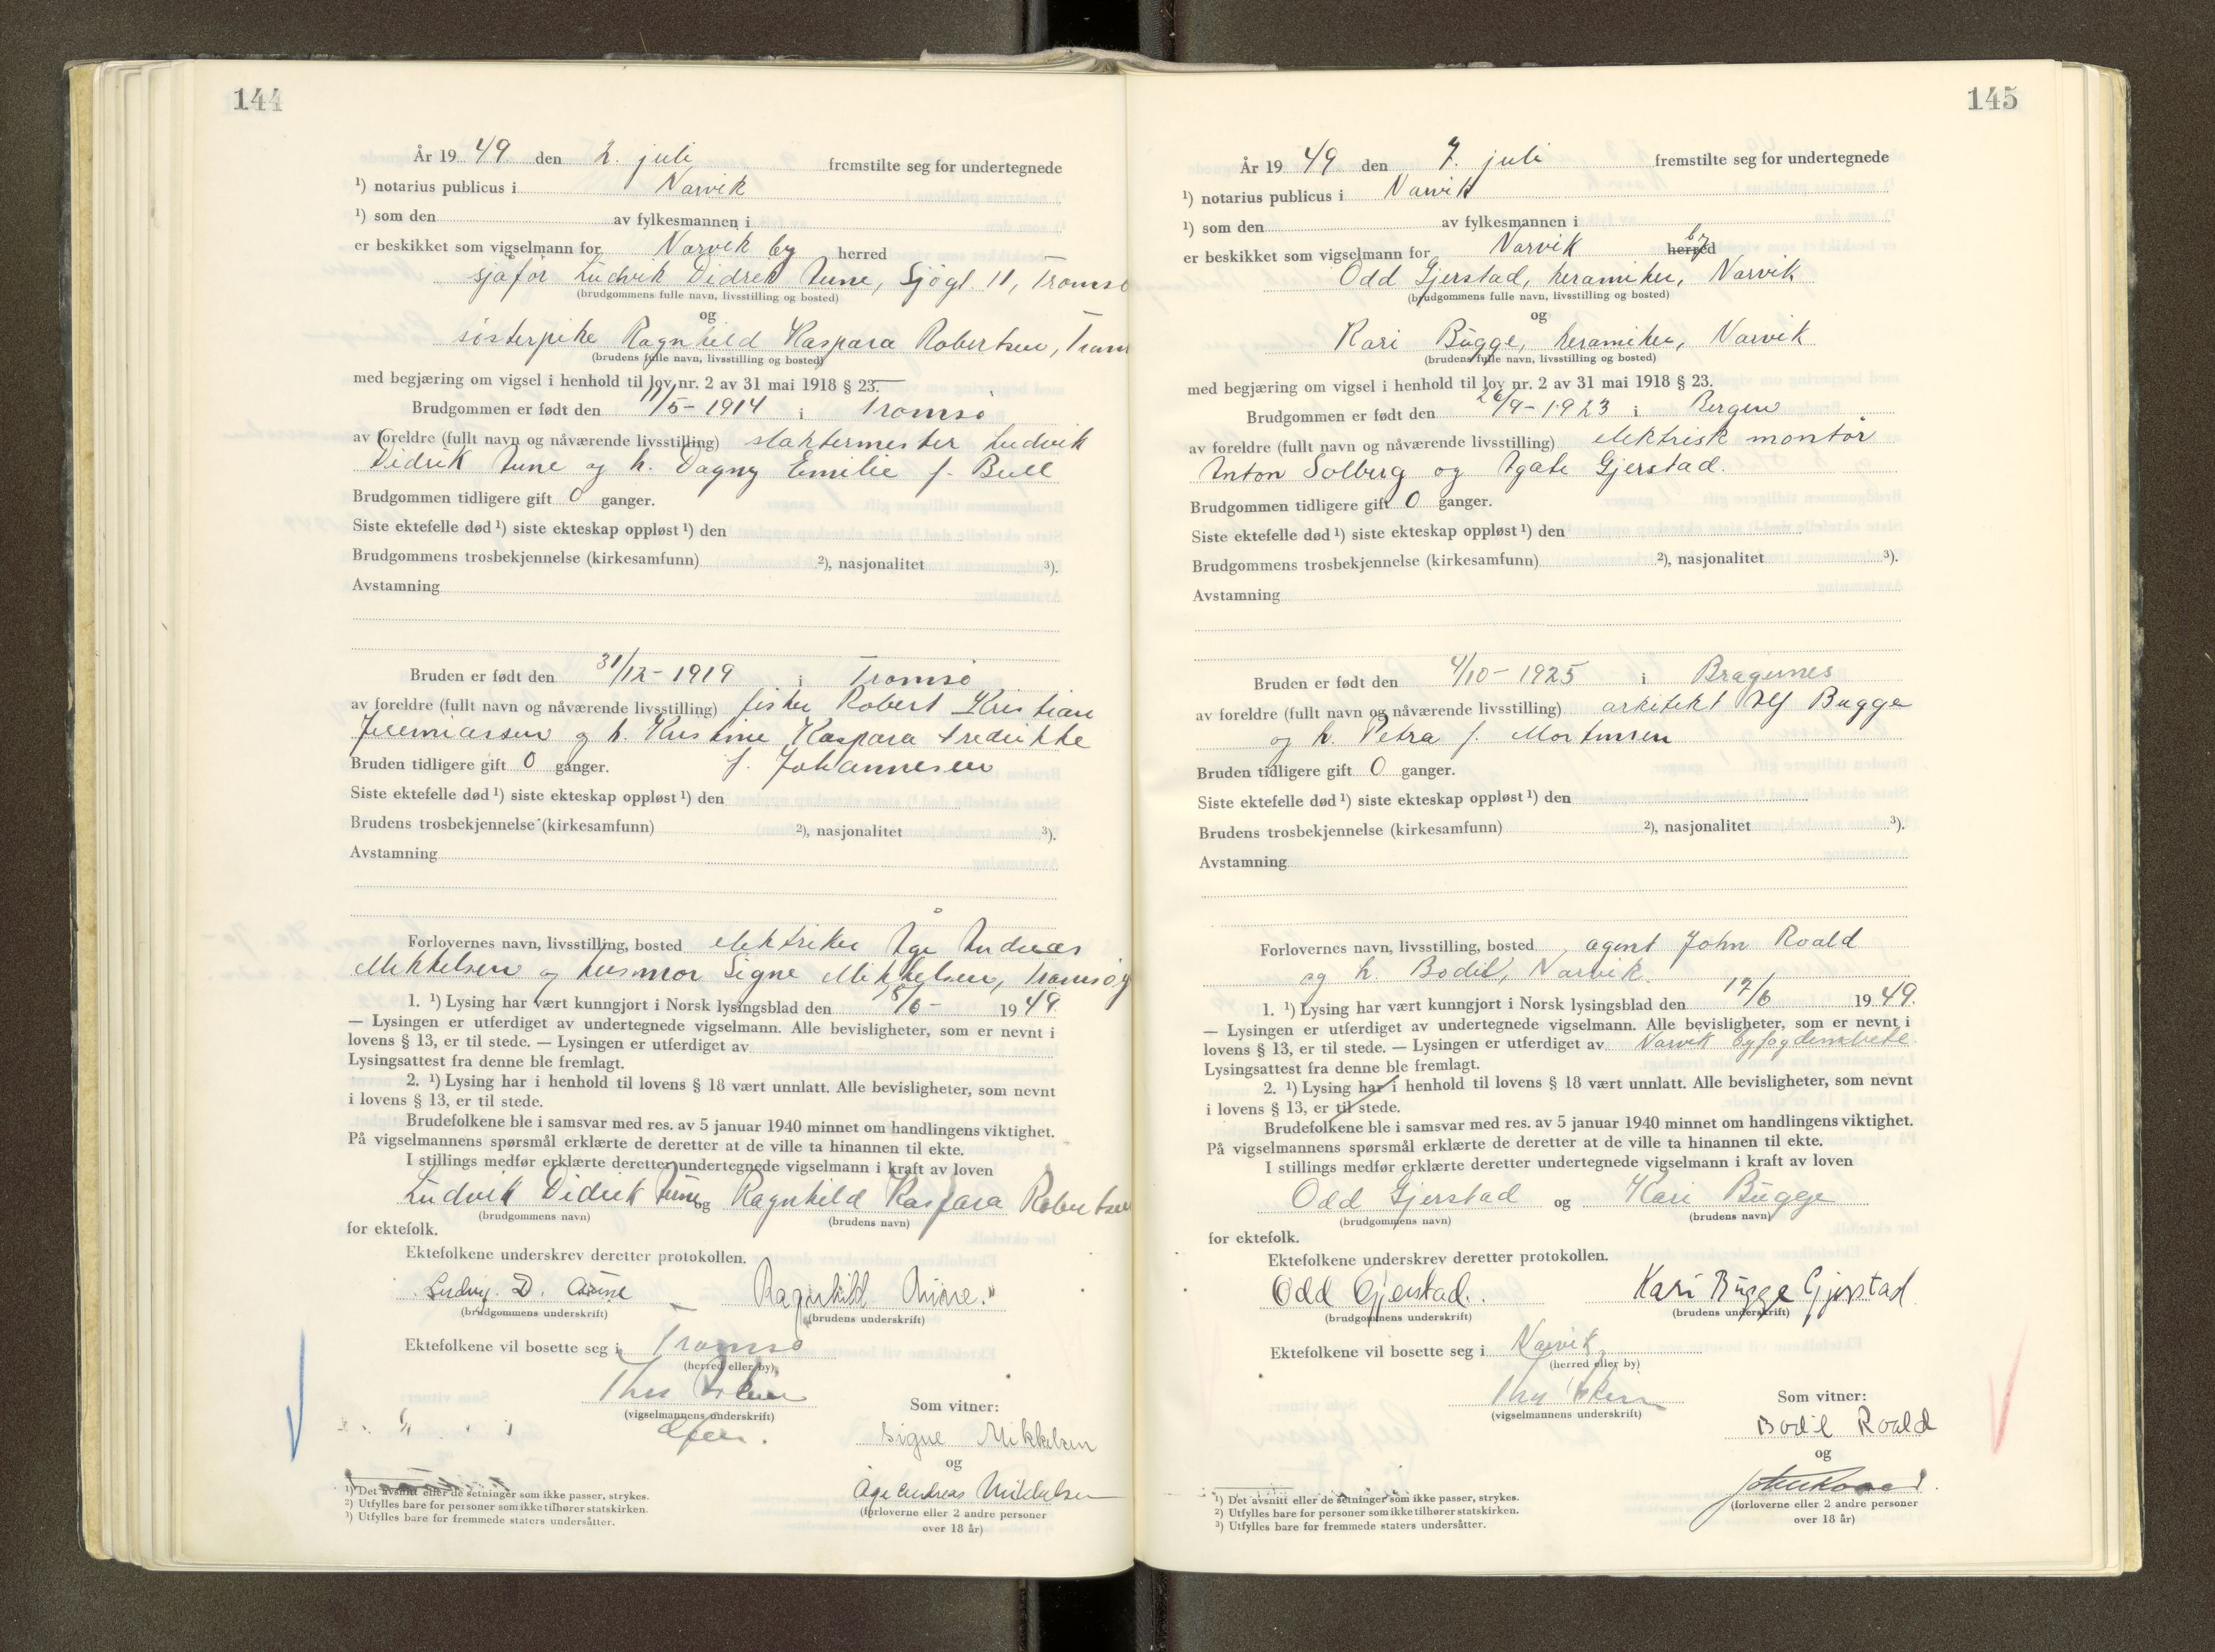 144
År 19 49 den 2. juli fremstilte seg for undertegnede
¹) notarius publicus i Narvik
¹) som den av fylkesmannen i
er beskikket som vigselmann for Narvik by herred
sjåfør Ludvik Didrek Aune, Sjøgt. 11, Tromsø
(brudgommens fulle navn, livsstilling og bosted)
og
søsterpike Ragnhild Kaspara Robertsen, Troms
(brudens fulle navn, livsstilling og bosted)
med begjæring om vigsel i henhold til lov nr. 2 av 31 mai 1918 § 23.
Brudgommen er født den 11/5-1914 i Tromsø
av foreldre (fullt navn og nåværende livsstilling) slaktermester Ludvik
Didrik Aune og h. Dagny Emilie f. Bull
Brudgommen tidligere gift 0 ganger.
Siste ektefelle død ¹) siste ekteskap oppløst ¹) den
Brudgommens trosbekjennelse (kirkesamfunn) ²), nasjonalitet ³).
Avstamning
Bruden er født den 31/12-1919 i Tromsø
av foreldre (fullt navn og nåværende livsstilling) fisker Robert Kristian
Jeremiassen og h. Kristine Kaspara Fredrikke
Bruden tidligere gift 0 ganger. f. Johannesen
Siste ektefelle død ¹) siste ekteskap oppløst ¹) den
Brudens trosbekjennelse (kirkesamfunn) ²), nasjonalitet ³).
Avstamning
Forlovernes navn, livsstilling, bosted elektriker Åge Andreas
Mikkelsen og husmor Signe Mikkelsen, Tromsø
1. ¹) Lysing har vært kunngjort i Norsk lysingsblad den /6- 19 49.
— Lysingen er utferdiget av undertegnede vigselmann. Alle bevisligheter, som er nevnt i
lovens § 13, er til stede. — Lysingen er utferdiget av
Lysingsattest fra denne ble fremlagt.
2. ¹) Lysing har i henhold til lovens § 18 vært unnlatt. Alle bevisligheter, som nevnt
i lovens § 13, er til stede.
Brudefolkene ble i samsvar med res. av 5 januar 1940 minnet om handlingens viktighet.
På vigselmannens spørsmål erklærte de deretter at de ville ta hinannen til ekte.
I stillings medfør erklærte deretter undertegnede vigselmann i kraft av loven
Ludvik Didrek Aune og Ragnhild Kaspara Robertsen
(brudgommens navn) (brudens navn)
for ektefolk.
Ektefolkene underskrev deretter protokollen.
Ludvig. D. Aune Ragnhild Aune.
(brudgommens underskrift) (brudens underskrift)
Ektefolkene vil bosette seg i Tromsø
(herred eller by)
(vigselmannens underskrift)
Som vitner:
Signe Mikkelsen
og
Åge Andreas Mikkelsen
(forloverne eller 2 andre personer
over 18 år)
¹) Det avsnitt eller de setninger som ikke passer, strykes.
²) Utfylles bare for personer som ikke tilhører statskirken.
³) Utfylles bare for fremmede staters undersåtter.
145
År 19 49 den 7. juli fremstilte seg for undertegnede
¹) notarius publicus i Narvik
¹) som den av fylkesmannen i
er beskikket som vigselmann for Narvik herred by
Odd Gjerstad, keramiker, Narvik
(brudgommens fulle navn, livsstilling og bosted)
og
Kari Bugge, keramiker, Narvik
(brudens fulle navn, livsstilling og bosted)
med begjæring om vigsel i henhold til lov nr. 2 av 31 mai 1918 § 23.
Brudgommen er født den 26/9-1923 i Bergen
av foreldre (fullt navn og nåværende livsstilling) elektrisk montør
Anton Solberg og Agate Gjerstad.
Brudgommen tidligere gift 0 ganger.
Siste ektefelle død ¹) siste ekteskap oppløst ¹) den
Brudgommens trosbekjennelse (kirkesamfunn) ²), nasjonalitet ³).
Avstamning
Bruden er født den 4/10-1925 i Bragernes
av foreldre (fullt navn og nåværende livsstilling) arkitekt Alf Bugge
og h. Petra f. Mortensen
Bruden tidligere gift 0 ganger.
Siste ektefelle død ¹) siste ekteskap oppløst ¹) den
Brudens trosbekjennelse (kirkesamfunn) ²), nasjonalitet ³).
Avstamning
Forlovernes navn, livsstilling, bosted agent John Roald
og h. Bodil, Narvik.
1. ¹) Lysing har vært kunngjort i Norsk lysingsblad den 17/6 19 49.
— Lysingen er utferdiget av undertegnede vigselmann. Alle bevisligheter, som er nevnt i
lovens § 13, er til stede. — Lysingen er utferdiget av Narvik byfogdembete
Lysingsattest fra denne ble fremlagt.
2. ¹) Lysing har i henhold til lovens § 18 vært unnlatt. Alle bevisligheter, som nevnt
i lovens § 13, er til stede.
Brudefolkene ble i samsvar med res. av 5 januar 1940 minnet om handlingens viktighet.
På vigselmannens spørsmål erklærte de deretter at de ville ta hinannen til ekte.
I stillings medfør erklærte deretter undertegnede vigselmann i kraft av loven
Odd Gjerstad og Kari Bugge
(brudgommens navn) (brudens navn)
for ektefolk.
Ektefolkene underskrev deretter protokollen.
Odd Gjerstad. Kari Bugge Gjerstad
(brudgommens underskrift) (brudens underskrift)
Ektefolkene vil bosette seg i Narvik
(herred eller by)
(vigselmannens underskrift)
Som vitner:
Bodil Roald
og
John Roald
(forloverne eller 2 andre personer
over 18 år)
¹) Det avsnitt eller de setninger som ikke passer, strykes.
²) Utfylles bare for personer som ikke tilhører statskirken.
³) Utfylles bare for fremmede staters undersåtter.